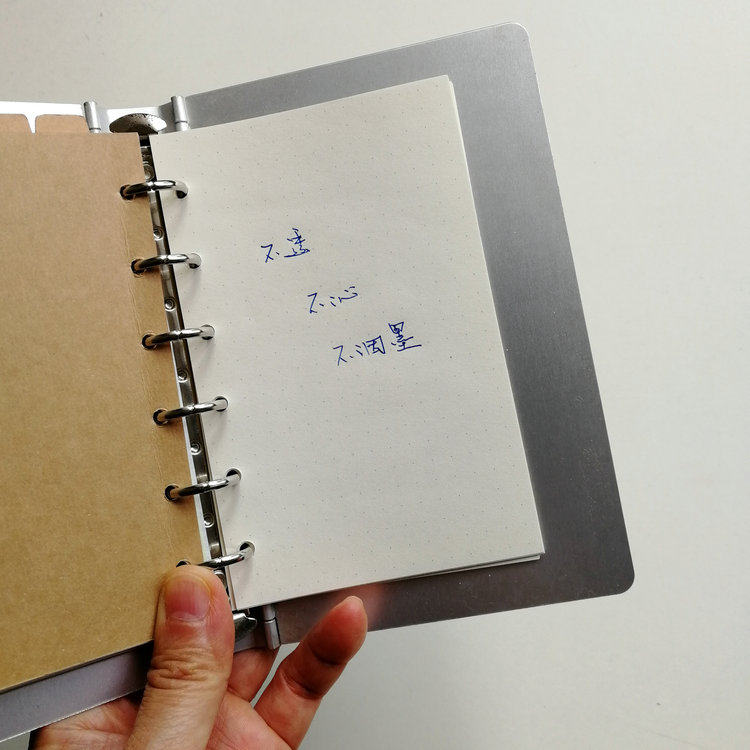 不透
不沁
不洇墨